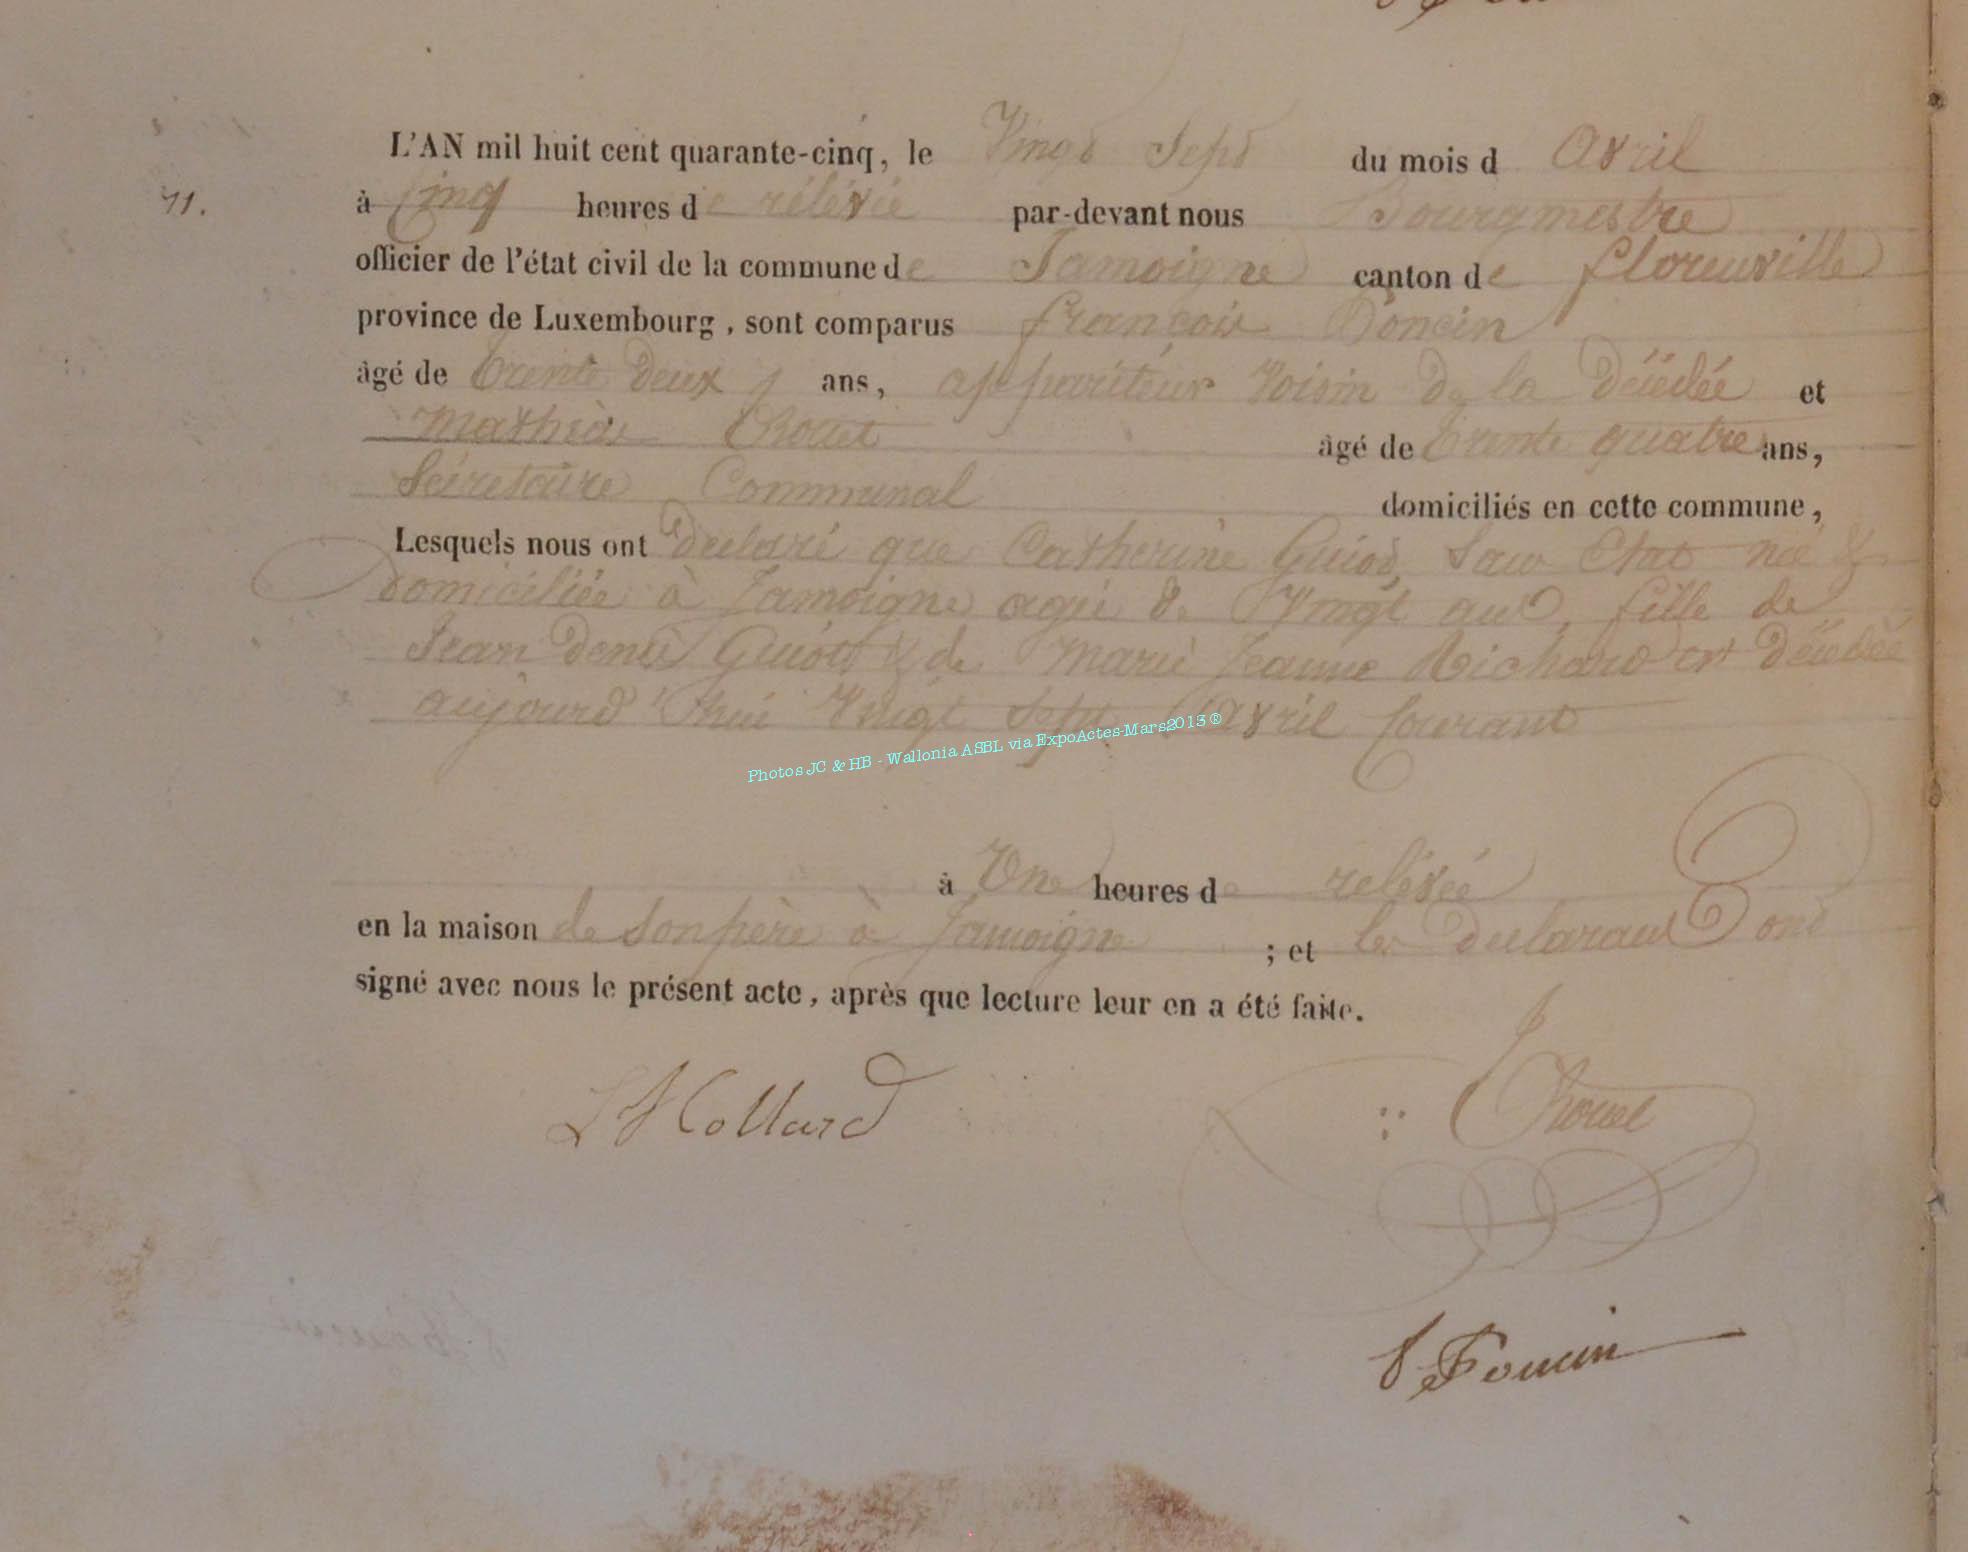 L'AN mil huit cent quarante-cinq, le Vingt Sept du mois d Avril
11. à Cinq heures de rélévée par-devant nous Bourgmestre
officier de l'état civil de la commune de Jamoigne canton de florenville
province de Luxembourg, sont comparus françois Poncin
âgé de trente deux ans, appariteur Voisin de la Décédée et
Mathieu Chouet âgé de trente quatre ans,
Sécretaire Communal domiciliés en cette commune,
Lesquels nous ont declaré que Catherine Guiot, Sans Etat née &
domiciliée à Jamoigne agée de Vingt ans, fille de
Jean Denis Guiot & de Marie Jeanne Richard est Décédée
aujourd'hui Vingt Sept Avril Courant
Photos JC & HB - Wallonia ASBL via ExpoActes-Mars2013 ®
à Une heures de relevée
en la maison de son père à Jamoigne ; et les declarans ont
signé avec nous le présent acte, après que lecture leur en a été faite.
Collard
Chouet
Poncin